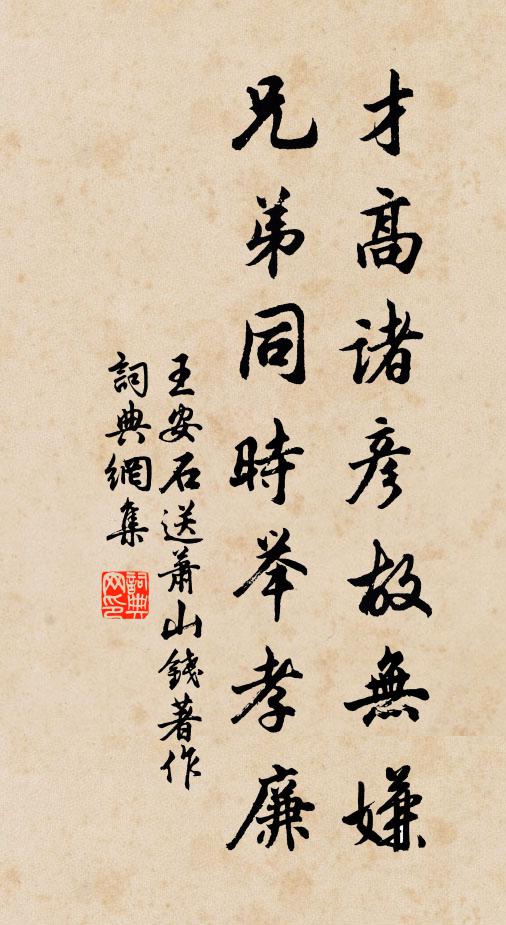 才高諸彥故無嫌
兄弟同時举孝廉
王安石送萧山錢著作
詞典網集
詞典网印